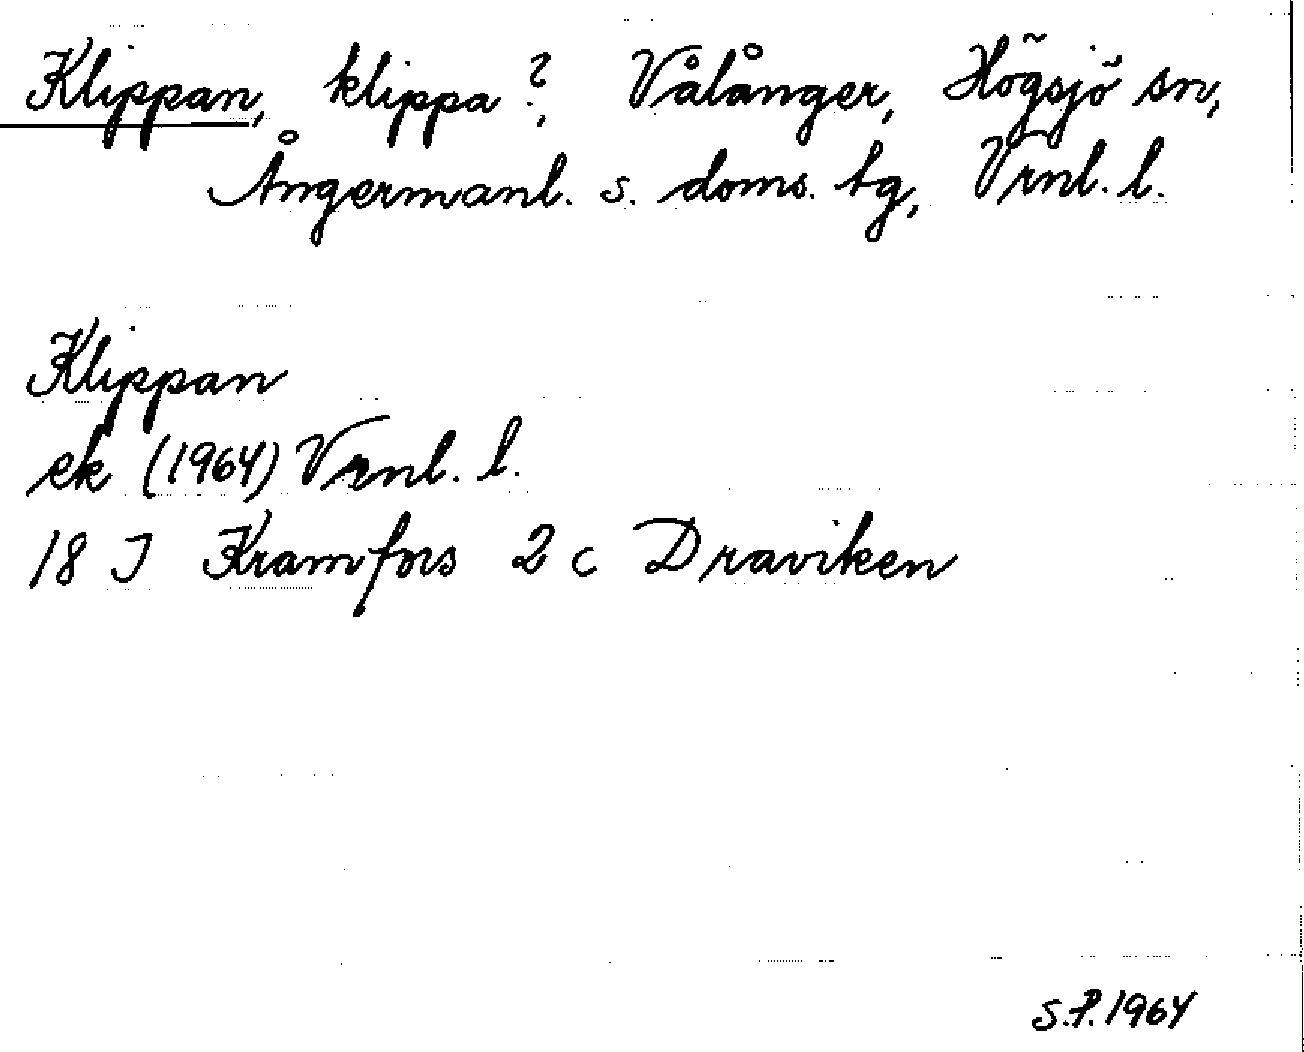 Klippan, klippa?, Vålånger, Högsjö sn,
Ångermanl. s. doms. tg, Vrnl. l.
Klippan
ek (1964) Vrnl. l.
18 J Kramfors 2 c Draviken
S.P. 1964